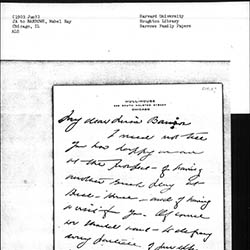 (1903 Jun?)
JA to BARROWS, Mabel Hay
Chicago, IL
ALS
Harvard University
Houghton Library
Barrows Family Papers
HULL-HOUSE
335 SOUTH HALSTED STREET
CHICAGO
My dear Miss Barrows
I need not tell
you how happy
at the prospect of having
another Greek play at
Hull-House and of having
a visit from you. Of course
we should want to defray
every